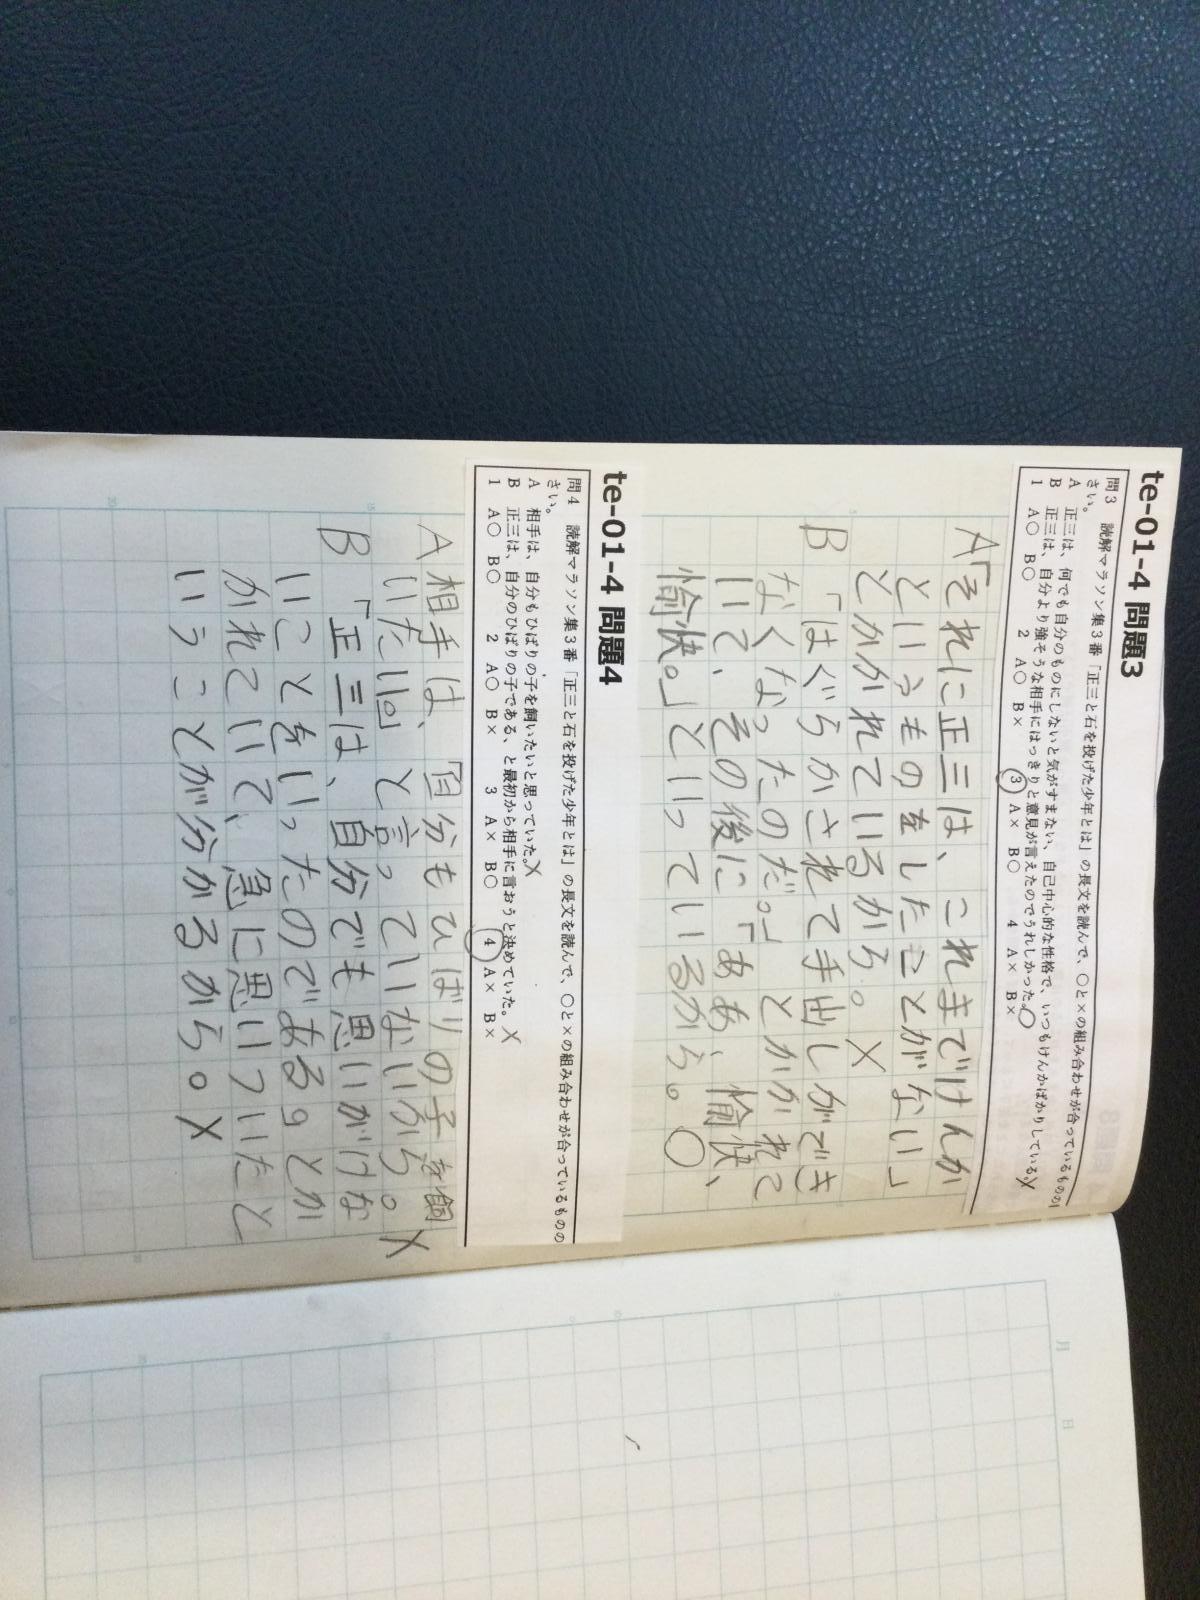 te-01-4 問題3
問3 読解マラソン集3番「正三と石を投げた少年とは」の長文を読んで、○と×の組み合わせが合っているものの
さい。
A 正三は、何でも自分のものにしないと気がすまない、自己中心的な性格で、いつもけんかばかりしている。×
B 正三は、自分より強そうな相手にはっきりと意見が言えたのでうれしかった。○
1 A○ B○ 2 A○ B× 3 A× B○ 4 A× B×
A「それに正三は、これまでけんか
というものをしたことがない」
とかかれているから。×
B「はぐらかされて手出しができ
なくなったのだ。」とかかれて
いて、その後に「ああ、愉快、
愉快。」といっているから。○
te-01-4 問題4
問4 読解マラソン集3番「正三と石を投げた少年とは」の長文を読んで、○と×の組み合わせが合っているものの
さい。
A 相手は、自分もひばりの子を飼いたいと思っていた。×
B 正三は、自分のひばりの子である、と最初から相手に言おうと決めていた。×
1 A○ B○ 2 A○ B× 3 A× B○ 4 A× B×
A相手は、「自分もひばりの子を飼
いたい。」と言っていないから。×
B「正三は、自分でも思いがけな
いことをいったのである。」とか
かれていて、急に思いついたと
いうことが分かるから。×
月 日